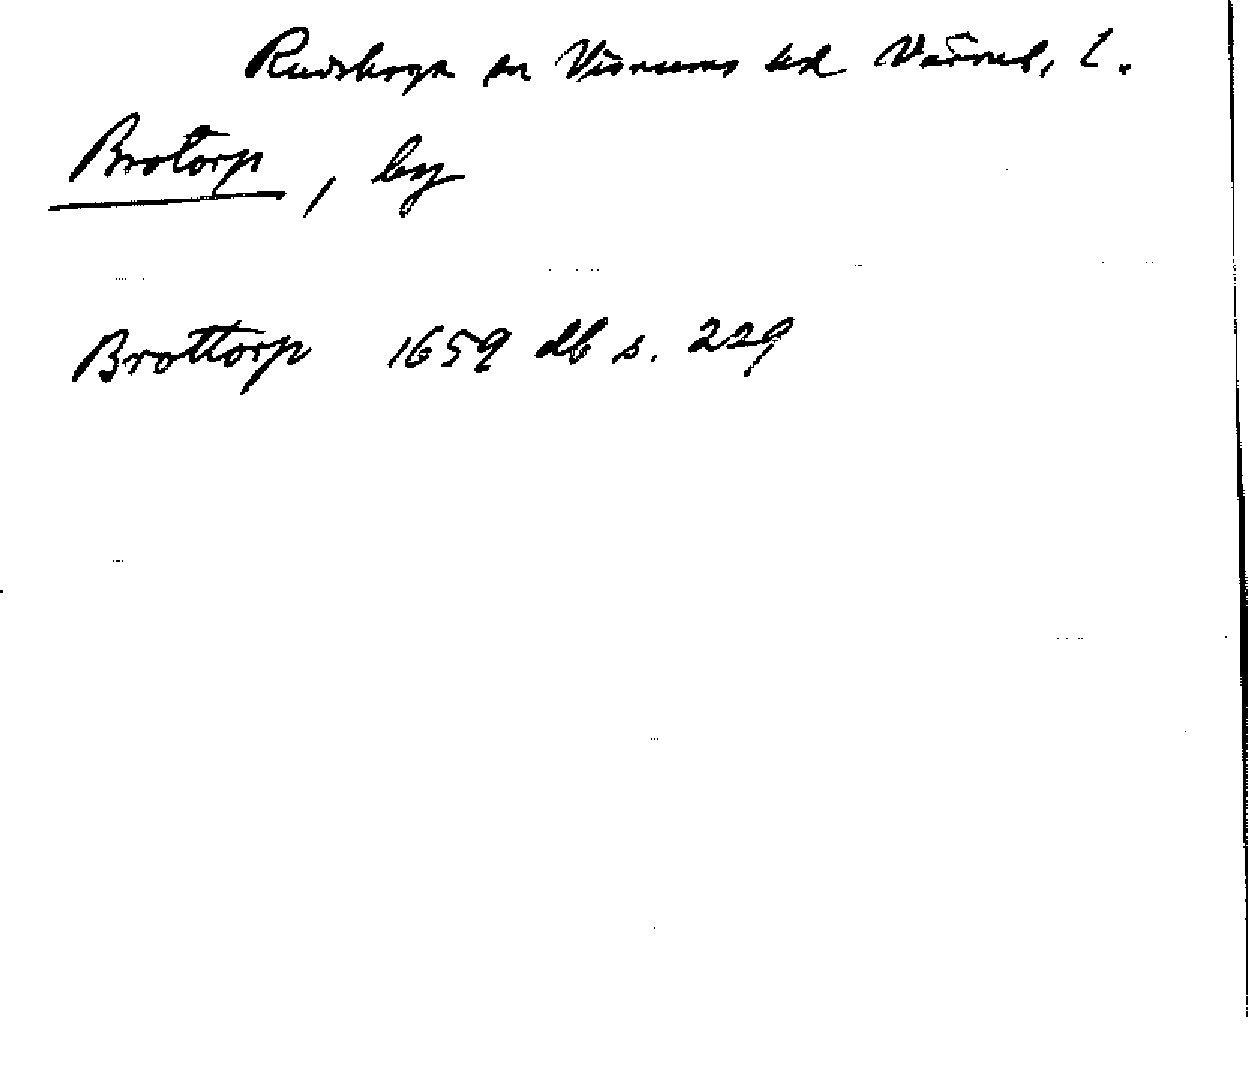 Rudskoga sn Visnums hd Värml. l.
Brotorp, by
Brottorp 1659 db s. 229